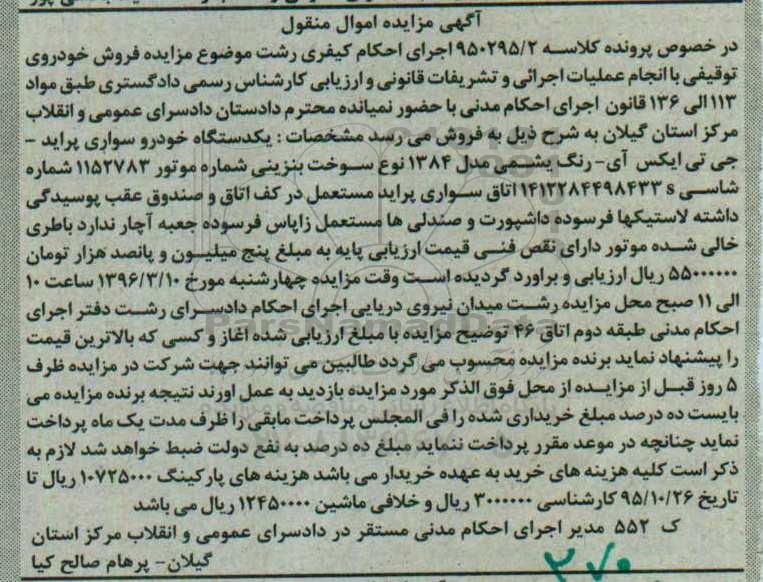 آگهی مزایده اموال منقول
در خصوص پرونده کلاسه ۹۵۰۲۹۵/۲ اجرای احکام کیفری رشت موضوع مزایده فروش خودروی
توقیفی با انجام عملیات اجرائی و تشریفات قانونی و ارزیابی کارشناس رسمی دادگستری طبق مواد
۱۱۳ الی ۱۳۶ قانون اجرای احکام مدنی با حضور نمیانده محترم دادستان دادسرای عمومی و انقلاب
مرکز استان گیلان به شرح ذیل به فروش می رسد مشخصات : یکدستگاه خودرو سواری پراید -
جی تی ایکس آی- رنگ یشمی مدل ۱۳۸۴ نوع سوخت بنزینی شماره موتور ۱۱۵۲۷۸۳ شماره
شاسی s ۱۴۱۲۲۸۴۴۹۸۴۳۳ اتاق سواری پراید مستعمل در کف اتاق و صندوق عقب پوسیدگی
داشته لاستیکها فرسوده داشپورت و صندلی ها مستعمل زاپاس فرسوده جعبه آچار ندارد باطری
خالی شده موتور دارای نقص فنی قیمت ارزیابی پایه به مبلغ پنج میلیون و پانصد هزار تومان
۵۵۰۰۰۰۰۰ ریال ارزیابی و براورد گردیده است وقت مزایده چهارشنبه مورخ ۱۳۹۶/۳/۱۰ ساعت ۱۰
الی ۱۱ صبح محل مزایده رشت میدان نیروی دریایی اجرای احکام دادسرای رشت دفتر اجرای
احکام مدنی طبقه دوم اتاق ۴۶ توضیح مزایده با مبلغ ارزیابی شده اغاز و کسی که بالاترین قیمت
را پیشنهاد نماید برنده مزایده محسوب می گردد طالبین می توانند جهت شرکت در مزایده ظرف
۵ روز قبل از مزایده از محل فوق الذکر مورد مزایده بازدید به عمل اورند نتیجه برنده مزایده می
بایست ده درصد مبلغ خریداری شده را فی المجلس پرداخت مابقی را ظرف مدت یک ماه پرداخت
نماید چنانچه در موعد مقرر پرداخت ننماید مبلغ ده درصد به نفع دولت ضبط خواهد شد لازم به
ذکر است کلیه هزینه های خرید به عهده خریدار می باشد هزینه های پارکینگ ۱۰۷۲۵۰۰۰ ریال تا
تاریخ ۹۵/۱۰/۲۶ کارشناسی ۳۰۰۰۰۰۰ ریال و خلافی ماشین ۱۲۴۵۰۰۰۰ ریال می باشد
ک ۵۵۲ مدیر اجرای احکام مدنی مستقر در دادسرای عمومی و انقلاب مرکز استان
گیلان- پرهام صالح کیا
۳۷۰
ParsNamadData